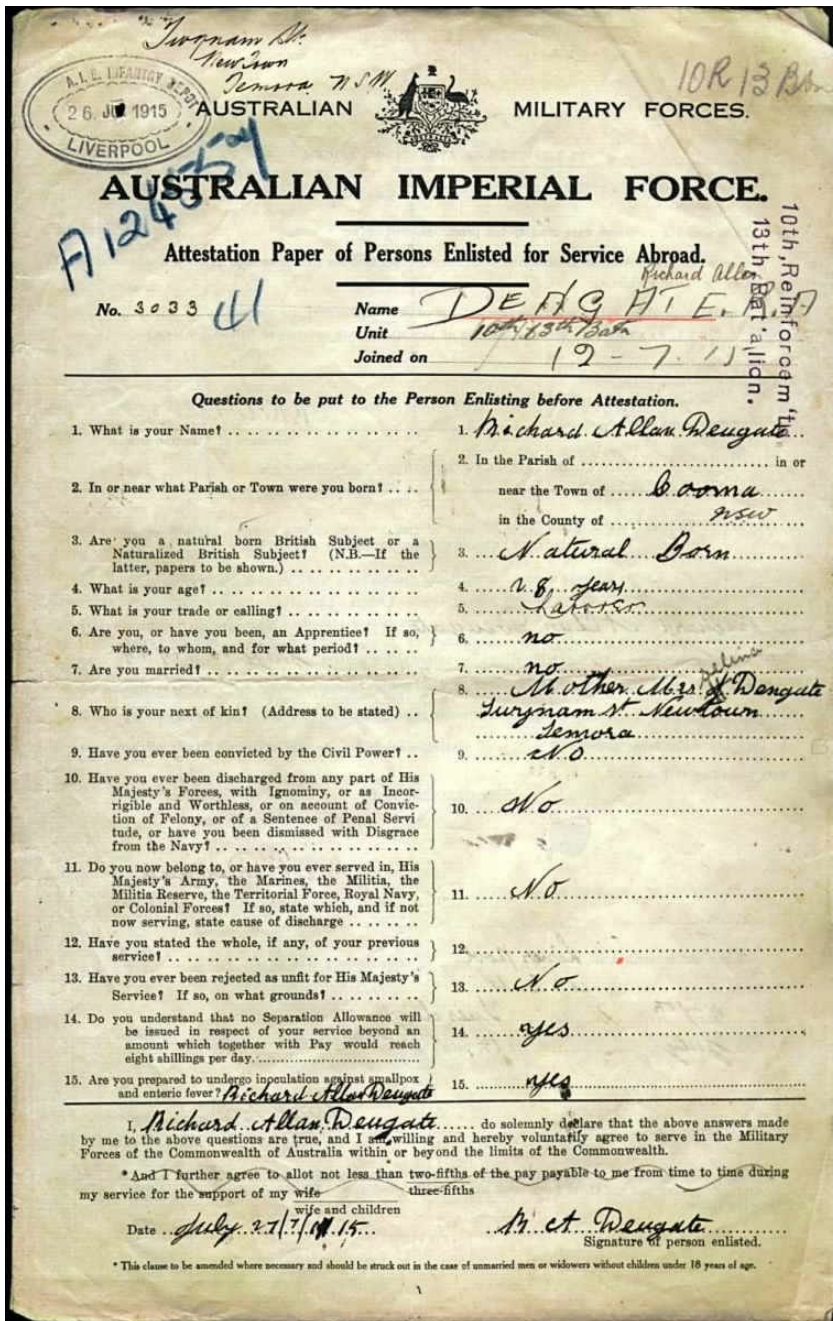 Twynam St.
New Town
Temora NSW
10R 13 Bn
A.I.F. INFANTRY DEPOT
26 JUL 1915
LIVERPOOL
AUSTRALIAN MILITARY FORCES.
A12455
AUSTRALIAN IMPERIAL FORCE.
Attestation Paper of Persons Enlisted for Service Abroad.
10th, Reinforcem'ts
13th Bat'alion.
Richard Allan
No. 3033 Name DENGATE. R.A
Unit 10th/13th Batn
Joined on 12-7-15
Questions to be put to the Person Enlisting before Attestation.
1. What is your Name? .. 1. Richard Allan Dengate
2. In the Parish of .......... in or
2. In or near what Parish or Town were you born? .. near the Town of Cooma
in the County of NSW
3. Are you a natural born British Subject or a
Naturalized British Subject? (N.B.—If the 3. Natural Born
latter, papers to be shown.) ..
4. What is your age? .. 4. 28 years
5. What is your trade or calling? .. 5. Laborer
6. Are you, or have you been, an Apprentice? If so,
where, to whom, and for what period? .. 6. no
7. Are you married? .. 7. no
8. Mother Mrs Dengate
8. Who is your next of kin? (Address to be stated) .. Turynam St Newtown
Temora
9. Have you ever been convicted by the Civil Power? .. 9. No
10. Have you ever been discharged from any part of His
Majesty's Forces, with Ignominy, or as Incor-
rigible and Worthless, or on account of Convic-
tion of Felony, or of a Sentence of Penal Servi 10. No
tude, or have you been dismissed with Disgrace
from the Navy? ..
11. Do you now belong to, or have you ever served in, His
Majesty's Army, the Marines, the Militia, the
Militia Reserve, the Territorial Force, Royal Navy, 11. No
or Colonial Forces? If so, state which, and if not
now serving, state cause of discharge ..
12. Have you stated the whole, if any, of your previous
service? .. 12.
13. Have you ever been rejected as unfit for His Majesty's
Service? If so, on what grounds? .. 13. No
14. Do you understand that no Separation Allowance will
be issued in respect of your service beyond an
amount which together with Pay would reach 14. yes
eight shillings per day.
15. Are you prepared to undergo inoculation against smallpox
and enteric fever? Richard Allan Dengate 15. yes
I, Richard Allan Dengate do solemnly declare that the above answers made
by me to the above questions are true, and I am willing and hereby voluntarily agree to serve in the Military
Forces of the Commonwealth of Australia within or beyond the limits of the Commonwealth.
*And I further agree to allot not less than two-fifths of the pay payable to me from time to time during
three-fifths
my service for the support of my wife
wife and children
Date July 27/7/15 R A Dengate
Signature of person enlisted.
* This clause to be amended where necessary and should be struck out in the case of unmarried men or widowers without children under 18 years of age.
1